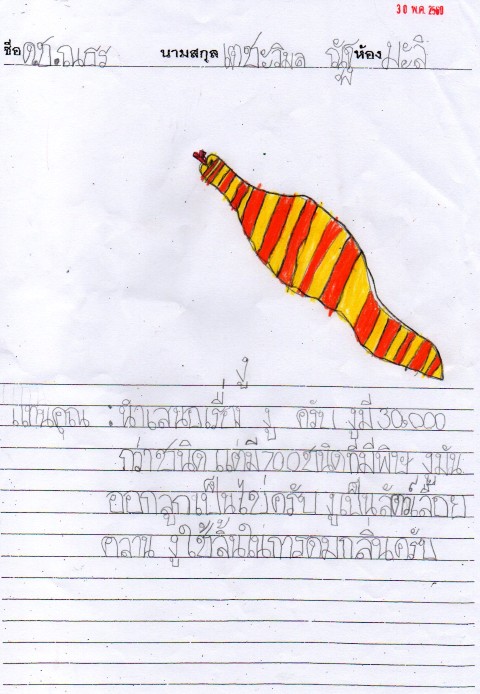 30 พ.ค. 2560
ชื่อ ด.ช.ณธร นามสกุล เตชะวิมล ห้อง มะลิ
งู
แทนคุณ : นำเสนอเรื่อง งู ครับ งูมี 30,000
กว่าชนิด แต่มี 700 ชนิดที่มีพิษ งูมัน
ออกลูกเป็นไข่ครับ งูเป็นสัตว์เลื้อย
คลาน งูใช้ลิ้นในการดมกลิ่นครับ